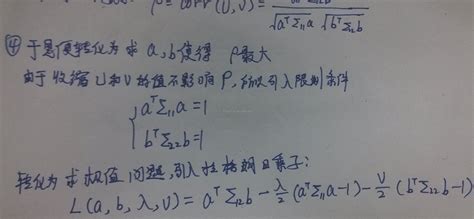 ρ = corr(U,V) = / √(aᵀΣ₁₁a) √(bᵀΣ₂₂b)
④ 于是便转化为求 a, b 使得 ρ最大
由于收缩 U和V 的值不影响 ρ, 所以引入限制条件
{ aᵀΣ₁₁a = 1
bᵀΣ₂₂b = 1
转化为求极值问题, 引入拉格朗日乘子:
L(a, b, λ, ν) = aᵀΣ₁₂b - λ/2 (aᵀΣ₁₁a - 1) - ν/2 (bᵀΣ₂₂b - 1)